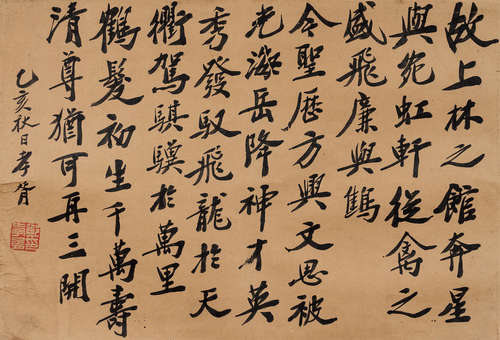 故上林之館奔星
與宛虹軒從禽之
盛飛廉與鶴
今聖歷方興文思被
光海岳降神才英
秀發馭飛龍於天
衢駕騏驥於萬里
鶴髮初生千萬壽
清尊猶可再三開
乙亥秋日孝胥